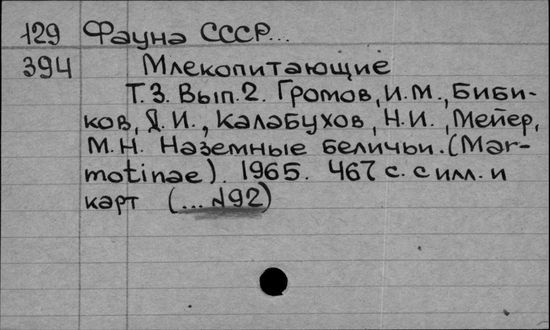 129 Фауна СССР...
394 Млекопитающие
Т.3. Вып.2. Громов, И.М., Биби-
ков, Д.И., Калабухов, Н.И., Мейер,
М.Н. Наземные беличьи. (Mar-
motinae). 1965. 467 с. с илл. и
карт (... №92)